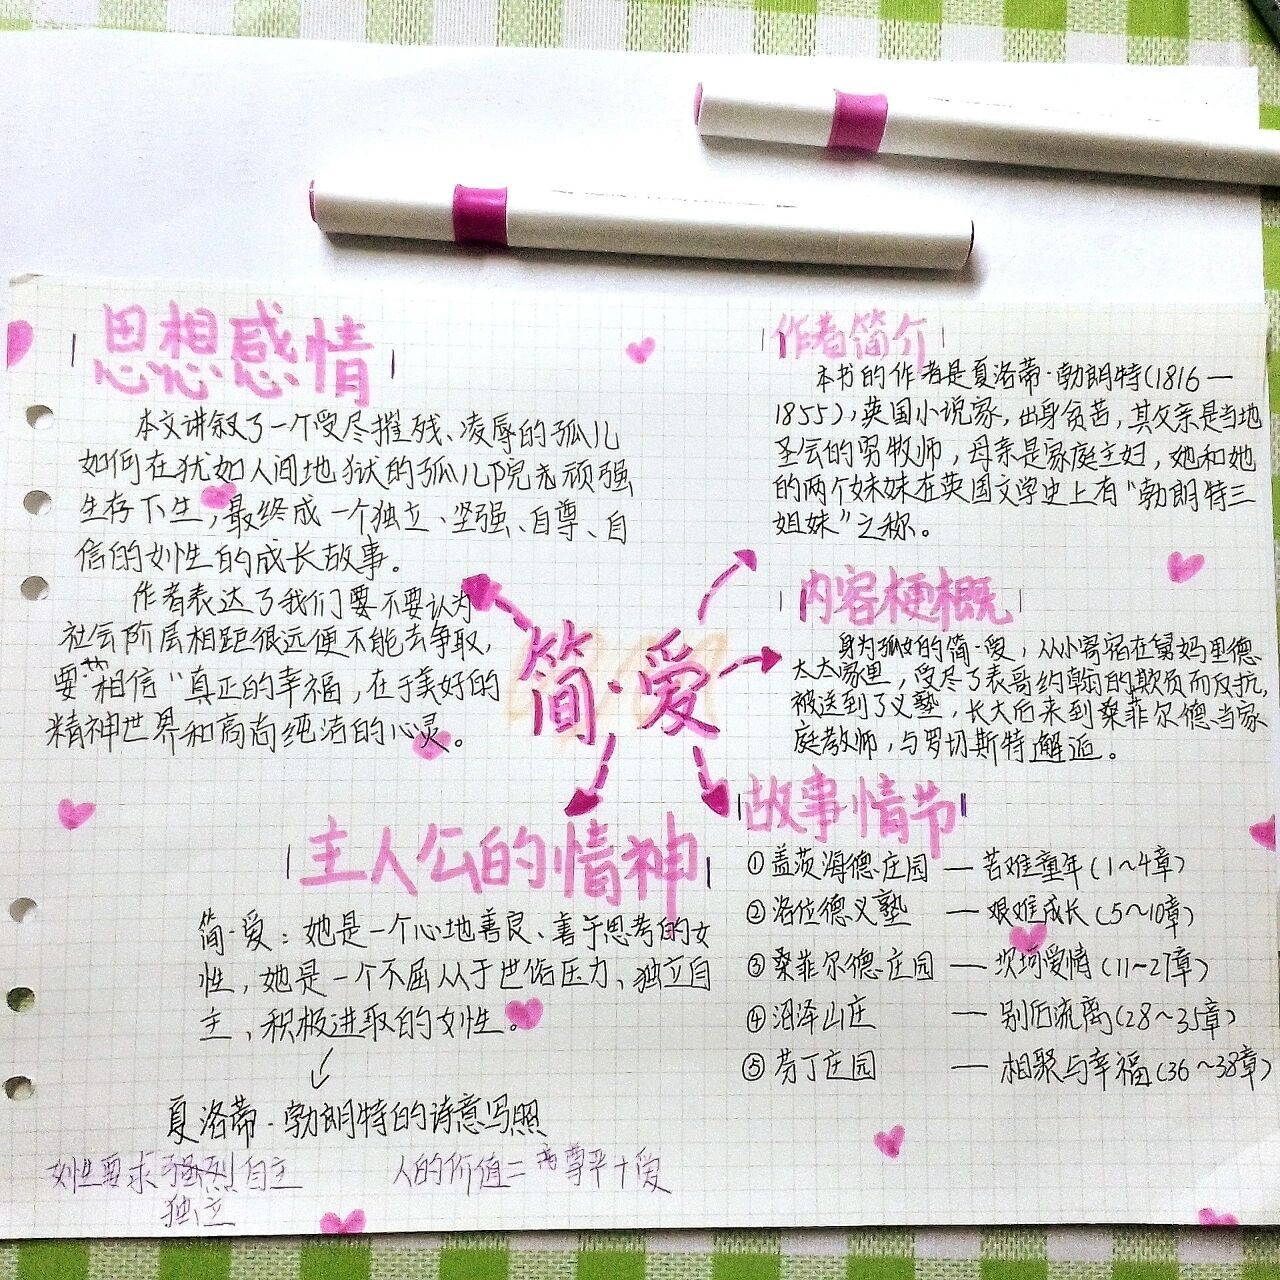 思想感情
本文讲叙了一个受尽摧残、凌辱的孤儿
如何在犹如人间地狱的孤儿院光顽强
生存下生，最终成一个独立、坚强、自尊、自
信的女性的成长故事。
作者表达了我们要不要认为
社会阶层相距很远便不能去争取，
要相信“真正的幸福，在于美好的
精神世界和高尚纯洁的心灵。
作者简介
本书的作者是夏洛蒂·勃朗特(1816—
1855)，英国小说家，出身贫苦，其父亲是当地
圣会的穷牧师，母亲是家庭主妇，她和她
的两个妹妹在英国文学史上有“勃朗特三
姐妹”之称。
简·爱
内容梗概
身为孤女的简·爱，从小寄宿在舅妈里德
太太家里，受尽了表哥约翰的欺负而反抗，
被送到了义塾，长大后来到桑菲尔德当家
庭教师，与罗切斯特邂逅。
主人公的情神
简·爱：她是一个心地善良、善于思考的女
性，她是一个不屈从于世俗压力、独立自
主、积极进取的女性。
夏洛蒂·勃朗特的诗意写照
女性要求强烈自主
独立
人的价值=尊严+爱
故事情节
①盖茨海德庄园—苦难童年(1~4章)
②洛位德义塾—艰难成长(5~10章)
③桑菲尔德庄园—坎坷爱情(11~27章)
④沼泽山庄—别后流离(28~35章)
⑤芬丁庄园—相聚与幸福(36~38章)